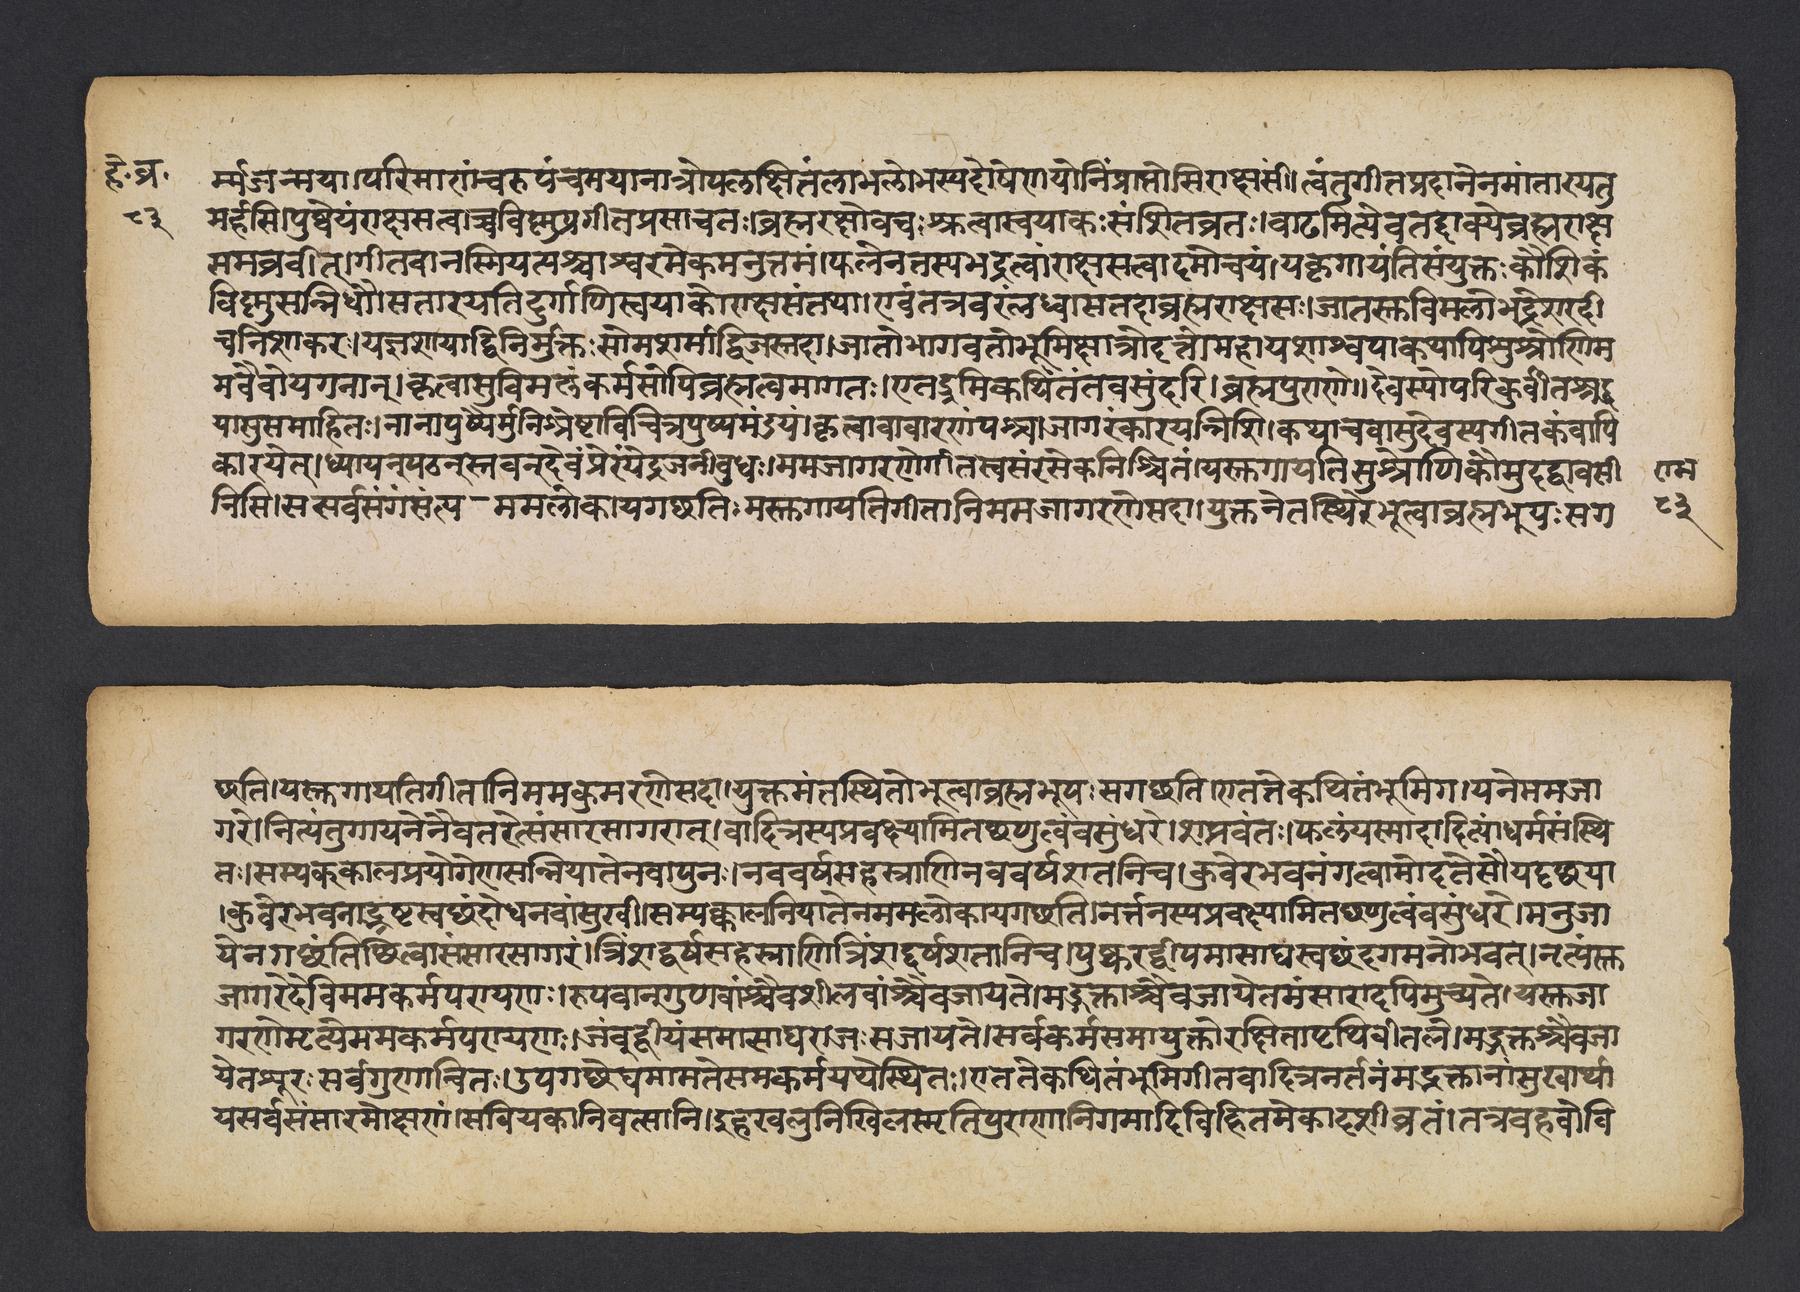 है॰व्र॰
८३
र्म्मजन्मया।परिमाणंचरुपंचमयानात्रोपलक्षितंलाभलोभस्यदोषेणयोनिंप्राप्तोसिराक्षसीं।त्वंतुगीतप्रदानेनमांतारयतु
मर्हसि।पुण्येयंराक्षसत्वाच्चविष्णुप्रगीतप्रसाचतः।ब्रह्मरक्षोवचःश्रुत्वाश्वपाकःसंशितव्रतः।वाढमित्येवतद्वाक्येब्रह्मराक्षस
ममब्रवीत्।गीतवानस्मियत्पश्चाश्वरमेकमनुत्तमं।फलेनतस्यभद्रत्वांराक्षसत्वादमोचयं।यकृगायंतिसंयुक्तःकौशिकं
विष्णुसन्निधौ।सतारयतिदुर्गाणिस्वयाकोराक्षसंतया।एवंतत्रवरंलध्वासतदाब्रह्मराक्षसः।जातस्तविमलोभद्रेशरदी
चनिशाकरः।यज्ञशायाद्विनिर्मुक्तःसोमशर्माद्विजस्तदा।जातोभागवतोभूमिक्षात्रोदत्तोमहायशाश्वपाकयापिसुश्रोणिम
मवैवोयगनान्।कृत्वासुविमलंकर्मसोपिब्रह्मत्वमागतः।एतद्रुमिकथितंतवसुंदरि।ब्रह्मपुराणे॥देवस्योपरिकुर्वीतश्रद्ध
यासुसमाहितः।नानापुष्पैर्मुनिश्रेष्टाविचित्रपुष्पमंडपं।कृत्वावावारणंपश्चाजागरंकारयन्निशि।कथाचवासुदेवस्पगीतकंवापि
कारयेत्।ध्यायन्पठन्स्तवन्देवंप्रेरयेद्रजनीबुधः।ममजागरणेगीतस्वसंरसेकनिश्चितं।यस्तगायतिसुश्रोणिकौमुदद्वादसी
निसि।ससर्वसंगंसंत्य-ममलोकायगछतिःमस्तगायतिगीतानिममजागरणेसदा।युक्तनेतस्थिरेभूत्वाब्रह्मभूपःसग
राम
८३
छति।यस्तगायतिगीतानिममक्रमरणेसदा।युक्तमंतस्थितोभूत्वाब्रह्मभूपःसगछति।एततेकथितंभूमिग।यनेममजा
गरे।नित्यंतुगायनेनैवतरेत्संसारसागरात्।वादित्रस्यप्रवक्ष्यामितछणुत्वंवसुंधरे।शप्रवंतः।फलंयस्मादादित्यांधर्मसंस्थि
तः।सम्यककालप्रयोगेणसन्नियातेनवापुनः।नववर्षसहस्त्राणिनववर्षशतनिच।कुवेरभवनंगत्वामोदतेसौयदृछया
।कुवेरभवनाद्रुष्टस्वछंदोधनवांसुखी।सम्यक्कालनियातेनममलोकायगछति।नर्त्तनस्यप्रवक्ष्यामितछणुत्वंवसुंधरे।मनुजा
येनगछंतिछित्वासंसारसागरं।त्रिंशद्वर्षसहस्त्राणित्रिंशद्वर्षशतानिच।पुष्करद्वीपमासाद्यस्वछंदगमनोभवत्।नृत्यंस्त
जागरेदेविममकर्मपरायणः।रूपवान्गुणवांश्चैवशीलवांश्चैवजायते।मद्भक्ताश्चैवजायेतमंसारादपिमुच्यते।यस्तजा
गरणेमृत्येममकर्मपरायणः।जंबुद्वीपंसमासाद्यराजःसजायते।सर्वकर्मसमायुक्तोरक्षितापृथिवीतले।मद्भक्तश्चैवजा
येतशूरःसर्वगुणान्वितः।उपगछेद्यमामतेसमकर्मयथेस्थितः।एततेकथितंभूमिगीतवादित्रनर्तनंमद्रक्तानांसुखार्था
यसर्वसंसारमोक्षणं।सवियकानिवत्सानि।दुहखलुनिखिलस्मृतिपुराणनिगमादिविहितमेकादशीव्रतं।तत्रवहवोवि